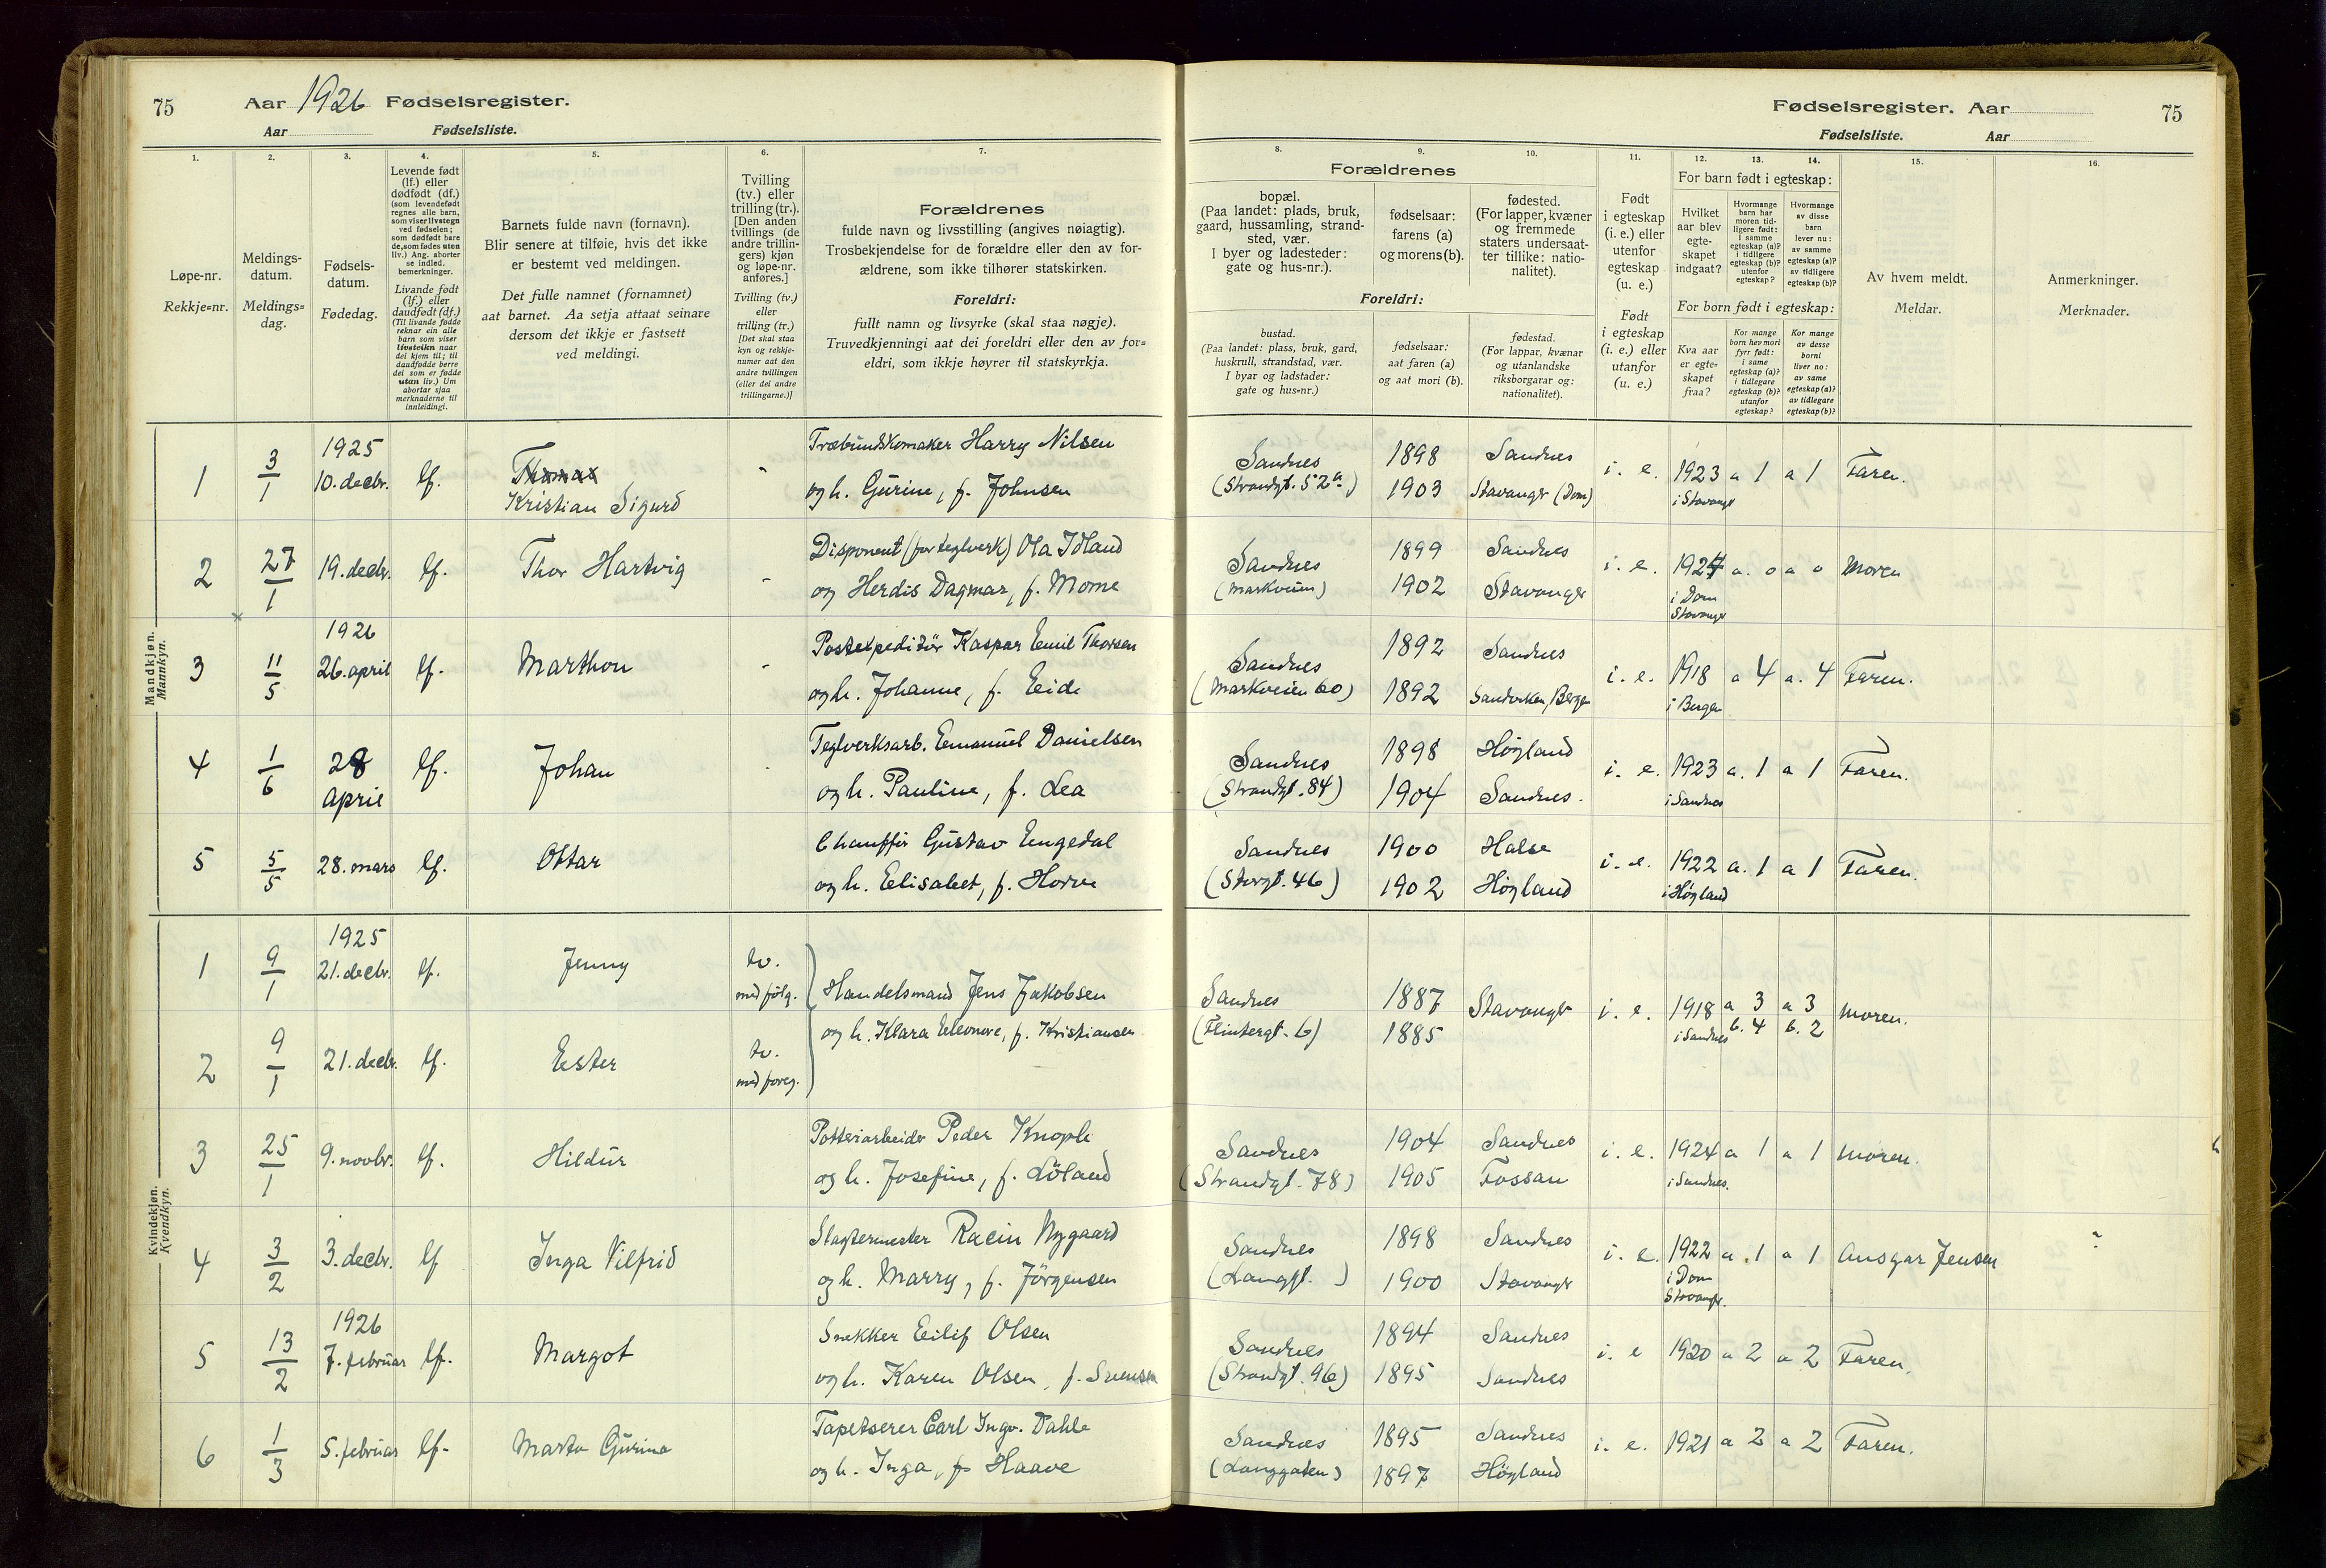 75 Aar 1926 Fødselsregister.
Aar Fødselsliste.
Fødselsregister. Aar 75
Fødselsliste. Aar
1.
Løpe-nr.
Rekkje=nr.
2.
Meldings-
datum.
Meldings=
dag.
3.
Fødsels-
datum.
Fødedag.
4.
Levende født
(lf.) eller
dødfødt (df.)
(som levendefødt
regnes alle barn,
som viser livstegn
ved fødselen;
som dødfødt bare
de, som fødes uten
liv.) Ang. aborter
se indled.
bemerkninger.
Livande født
(lf.) eller
daudfødt (df.)
(Til livande fødde
reknar ein alle
barn som viser
livsteikn naar
dei kjem til; til
daudfødde berre
dei som er fødde
utan liv.) Um
abortar sjaa
merknaderne til
innleidingi.
5.
Barnets fulde navn (fornavn).
Blir senere at tilføie, hvis det ikke
er bestemt ved meldingen.
Det fulle namnet (fornamnet)
aat barnet. Aa setja attaat seinare
dersom det ikkje er fastsett
ved meldingi.
6.
Tvilling
(tv.) eller
trilling (tr.).
[Den anden
tvillings (de
andre trillin-
gers) kjøn
og løpe-nr.
anføres.]
Tvilling (tv.)
eller
trilling (tr.)
[Det skal staa
kyn og rekkje-
numer aat den
andre tvillingen
(eller dei andre
trillingarne.)]
7.
Forældrenes
fulde navn og livsstilling (angives nøiagtig).
Trosbekjendelse for de forældre eller den av for-
ældrene, som ikke tilhører statskirken.
Foreldri:
fullt namn og livsyrke (skal staa nøgje).
Truvedkjenningi aat dei foreldri eller den av for=
eldri, som ikkje høyrer til statskyrkja.
Forældrenes
8.
bopæl.
(Paa landet: plads, bruk,
gaard, hussamling, strand-
sted, vær.
I byer og ladesteder:
gate og hus-nr.).
9.
fødselsaar:
farens (a)
og morens (b).
10.
fødested.
(For lapper, kvæner
og fremmede
staters undersaat-
ter tillike: natio-
nalitet).
Foreldri:
bustad.
(Paa landet: plass, bruk, gard,
huskrull, strandstad, vær.
I byar og ladstader:
gate og hus=nr.)
fødselsaar:
aat faren (a)
og aat mori (b).
fødestad.
(For lappar, kvænar
og utanlandske
riksborgarar og:
nationalitet).
11.
Født
i egteskap
(i. e.) eller
utenfor
egteskap
(u. e.)
Født
i egteskap
(i. e.) eller
utanfor
(u. e.)
12. 13. 14.
For barn født i egteskap:
Hvilket
aar blev
egte-
skapet
indgaat?
Hvormange
barn har
moren tid-
ligere født:
i samme
egteskap (a)?
i tidligere
egteskap (b)?
utenfor
egteskap?
Hvormange
av disse
barn
lever nu:
av samme
egteskap (a)?
av tidligere
egteskap (b)?
For born født i egteskap:
Kva aar
er egte=
skapet
fraa?
Kor mange
born hev mori
fyrr født:
i same
egteskap (a)?
i tidlegare
egteskap (b)?
utanfor
egteskap?
Kor mange
av desse
borni
liver no:
av same
egteskap (a)?
av tidlegare
egteskap (b)?
15.
Av hvem meldt.
Meldar.
16.
Anmerkninger.
Merknader.
Mandkjøn.
Mannkyn.
1 3/1 1925 10. decbr. lf. Thomas Kristian Sigurd Træbundskomaker Harry Nilsen
og h. Gurine, f. Johnsen
Sandnes (Strandgt. 52a) 1898 1903 Sandnes Stavanger (Dom) i. e. 1923 i Stavangr a 1 a 1 Faren.
2 27/1 19. decbr. lf. Thor Hartvig Disponent (for teglverk) Ola Idland
og Herdis Dagmar, f. Mome
Sandnes (Markveien) 1899 1902 Sandnes Stavanger i. e. 1924 i Dom Stavangr a. 0 a 0 Moren
3 11/5 1926 26. april lf. Marthon Postexpeditør Kaspar Emil Thorsen
og h. Johanne, f. Eide
Sandnes (Markveien 60) 1892 1892 Sandnes Sandviken, Bergen i. e. 1918 i Bergen a 4 a. 4 Faren.
4 1/6 28 april lf. Johan Teglverksarb. Emanuel Danielsen
og h. Pauline, f. Lea
Sandnes (Strandgt. 84) 1898 1904 Høgland Sandnes. i. e. 1923 i Sandnes a. 1 a 1 Faren.
5 5/5 28. mars lf. Ottar Chauffør Gustav Engedal
og h. Elisabet, f. Horve
Sandnes (Storgt. 46) 1900 1902 Halse Høgland i. e. 1922 i Høgland a. 1 a 1 Faren.
Kvindekjøn.
Kvendkyn.
1 9/1 1925 21. decbr. lf. Jenny tv. med følg. Handelsmand Jens Jakobsen
og h. Klara Eleonore, f. Kristiansen
Sandnes (Flintergt. 6) 1887 1885 Stavanger i. e. 1918 i Sandnes a 3 b. 4 a 3 b. 2 Moren.
2 9/1 21. decbr. lf. Ester tv. med foreg.
3 25/1 9. novbr. lf. Hildur Potteriarbeider Peder Knoph
og h. Josefine, f. Løland
Sandnes (Strandgt. 78) 1904 1905 Sandnes Fossan i. e. 1924 i Sandnes. a 1 a 1 Moren.
4 3/2 3. decbr. lf Inga Vilfrid Slagtermester Racin Nygaard
og h. Marry, f. Jørgensen
Sandnes (Langgt. ) 1898 1900 Sandnes Stavanger i. e. 1922 i Dom Stavangr. a. 1 a 1 Ansgar Jensen
5 13/2 1926 7. februar lf. Margot Snekker Eilif Olsen
og h. Karen Olsen, f. Svensen
Sandnes (Strandgt. 96) 1894 1895 Sandnes Sandnes i. e 1920 a 2 a 2 Faren.
6 1/3 5. februar lf. Marta Gurina Tapetserer Carl Ingv. Dahle
og h. Inga, f. Haave
Sandnes (Langgaten) 1895 1897 Sandnes Høgland i. e. 1921 a 2 a 2 Faren.